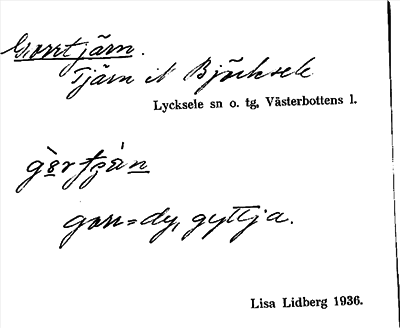 Gorrtjärn.
Tjärn i N Björksele
Lycksele sn o. tg, Västerbottens l.
gorr = dy, gyttja.
Lisa Lidberg 1936.